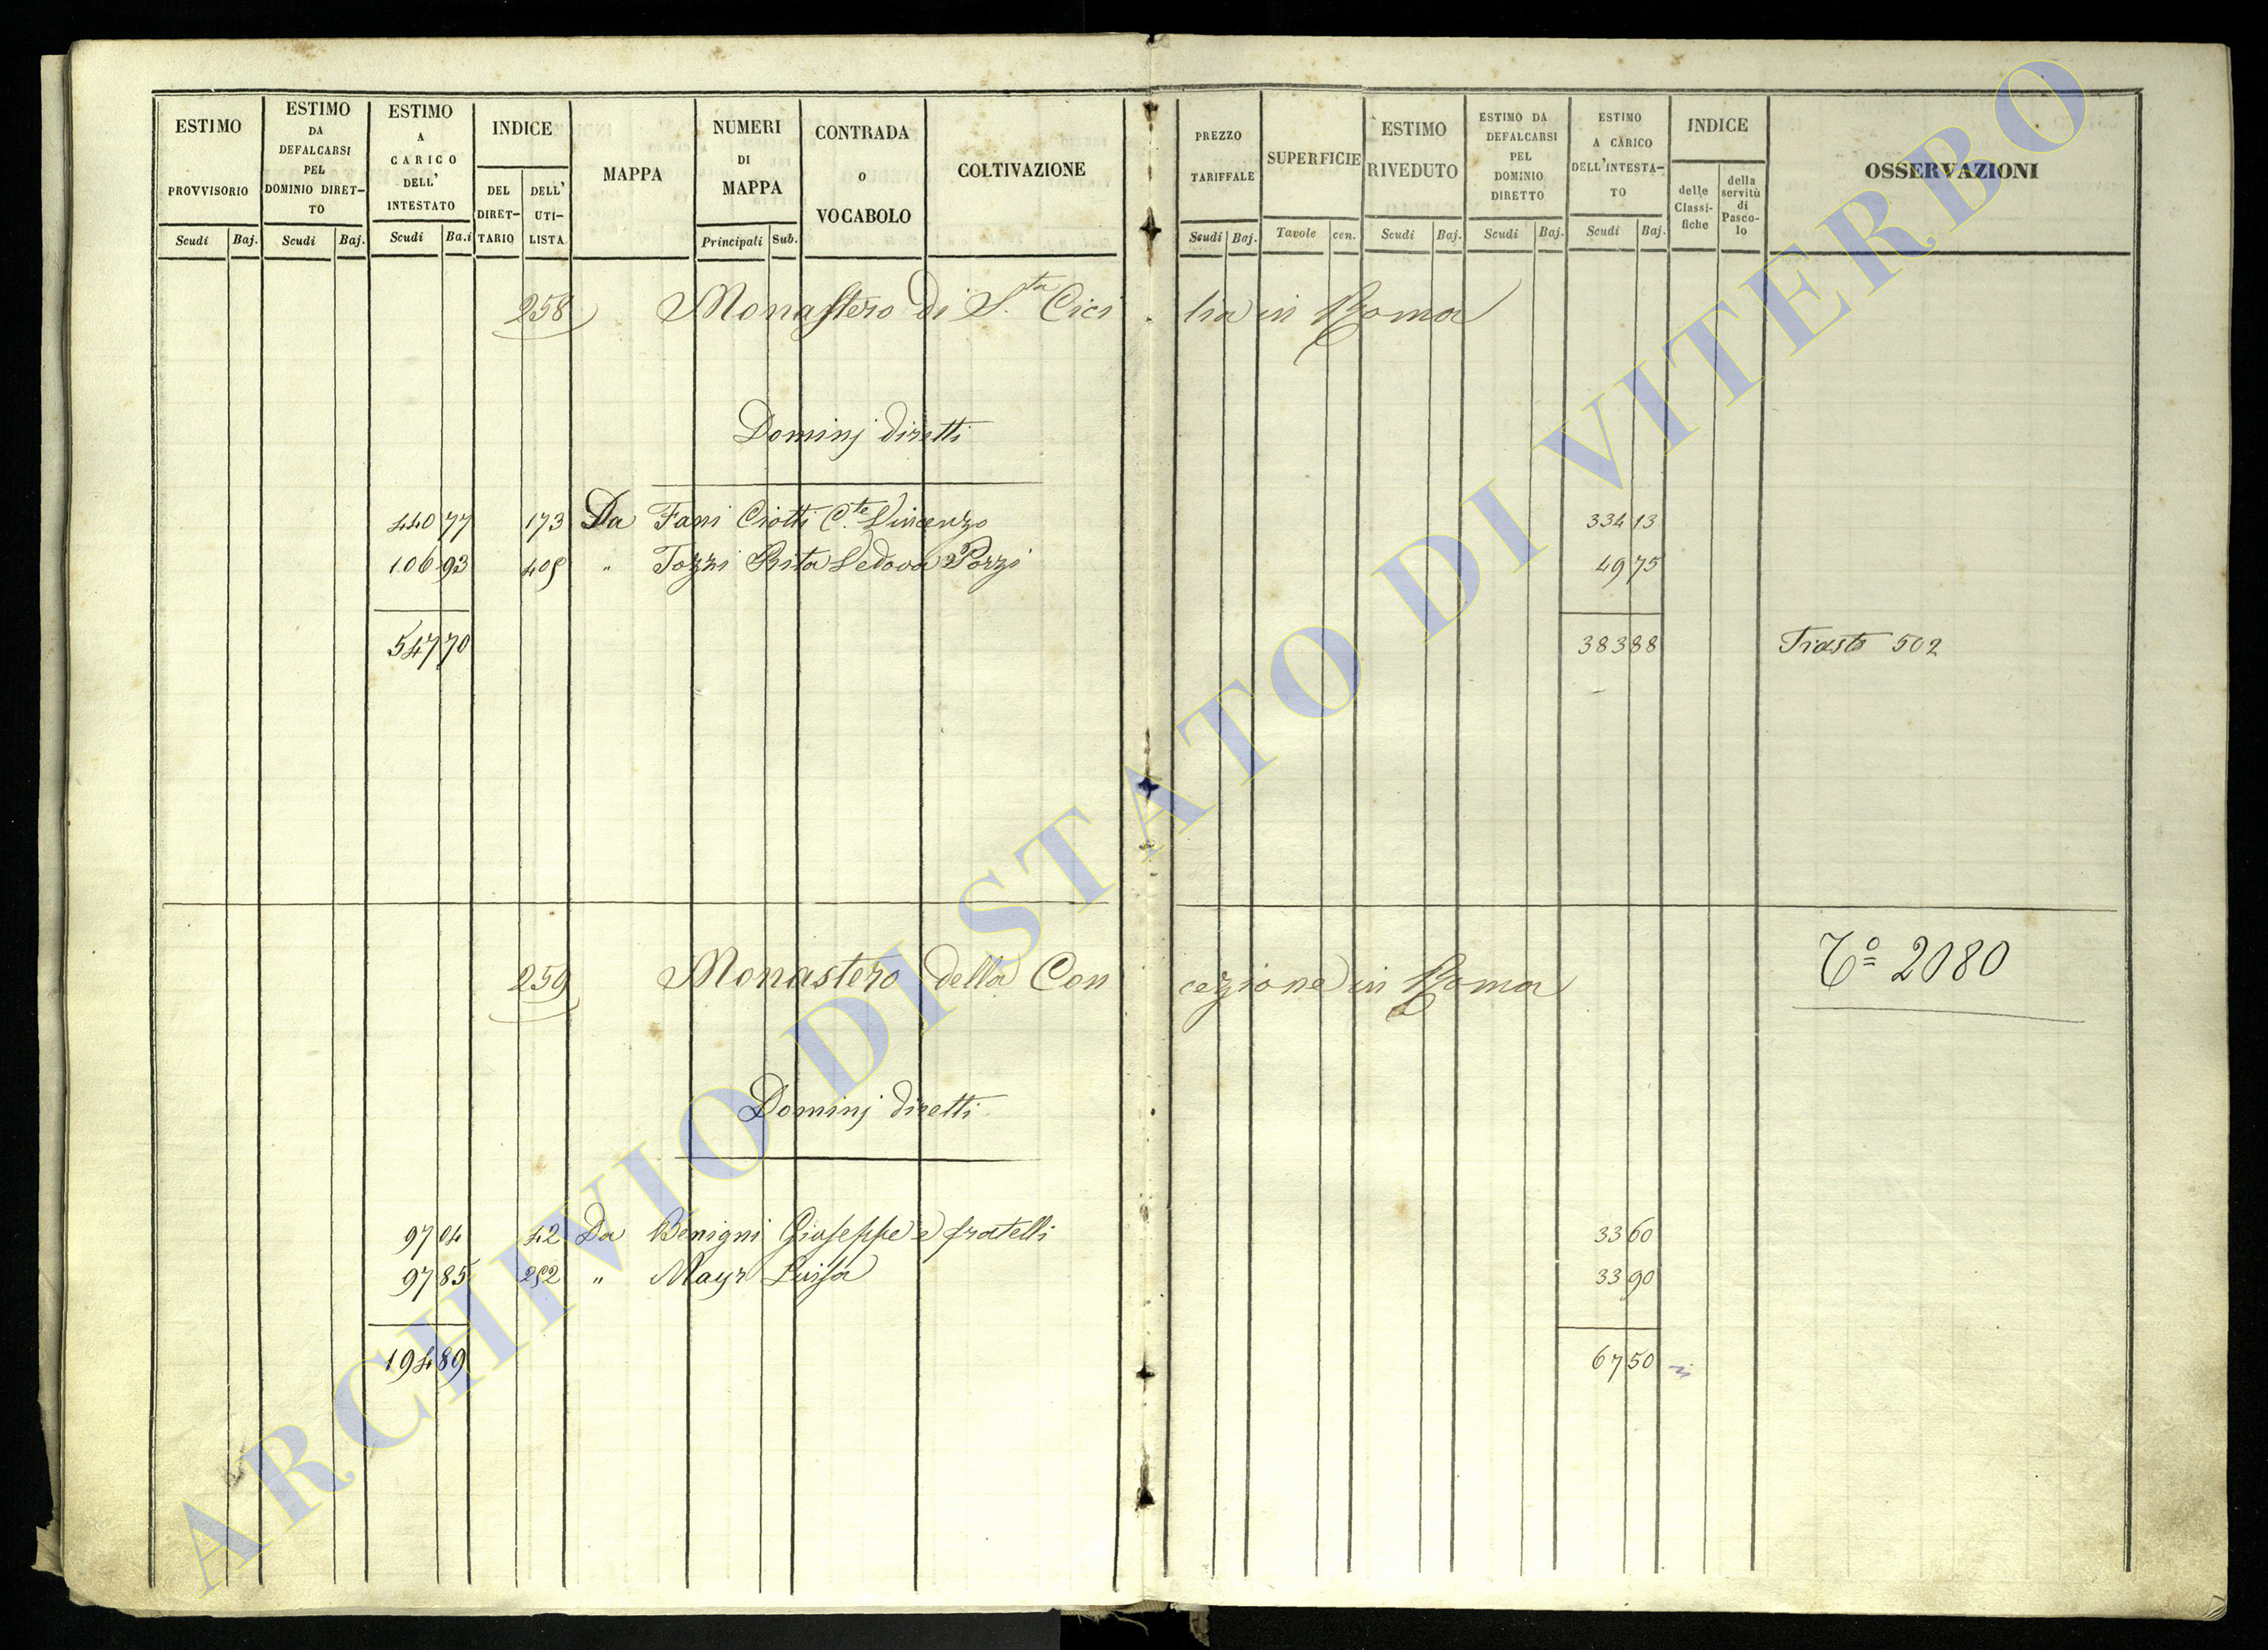 ESTIMO PROVVISORIO
Scudi Baj.
ESTIMO DA DEFALCARSI PEL DOMINIO DIRET-TO
Scudi Baj.
ESTIMO A CARICO DELL' INTESTATO
Scudi Ba.i
INDICE
DEL DIRET-TARIO
DELL' UTI-LISTA
MAPPA
NUMERI DI MAPPA
Principali Sub.
CONTRADA o VOCABOLO
COLTIVAZIONE
PREZZO TARIFFALE
Scudi Baj.
SUPERFICIE
Tavole cen.
ESTIMO RIVEDUTO
Scudi Baj.
ESTIMO DA DEFALCARSI PEL DOMINIO DIRETTO
Scudi Baj.
ESTIMO A CARICO DELL'INTESTA-TO
Scudi Baj.
INDICE
delle Classi-fiche
della servitù di Pasco-lo
OSSERVAZIONI
258 Monastero di S.ta Cici lia in Roma
Dominj diretti
440 77 173 Da Fani Ciotti C.te Vincenzo 334 13
106 93 405 " Tozzi Rita Vedova Pozzi 49 75
547 70 383 88 502
259 Monastero della Con cezione in Roma
T.º 2080
Dominj diretti
97 04 42 Da Benigni Giuseppe e fratelli 33 60
97 85 252 " Mayr Luisa 33 90
194 89 67 50
ARCHIVIO DI STATO DI VITERBO